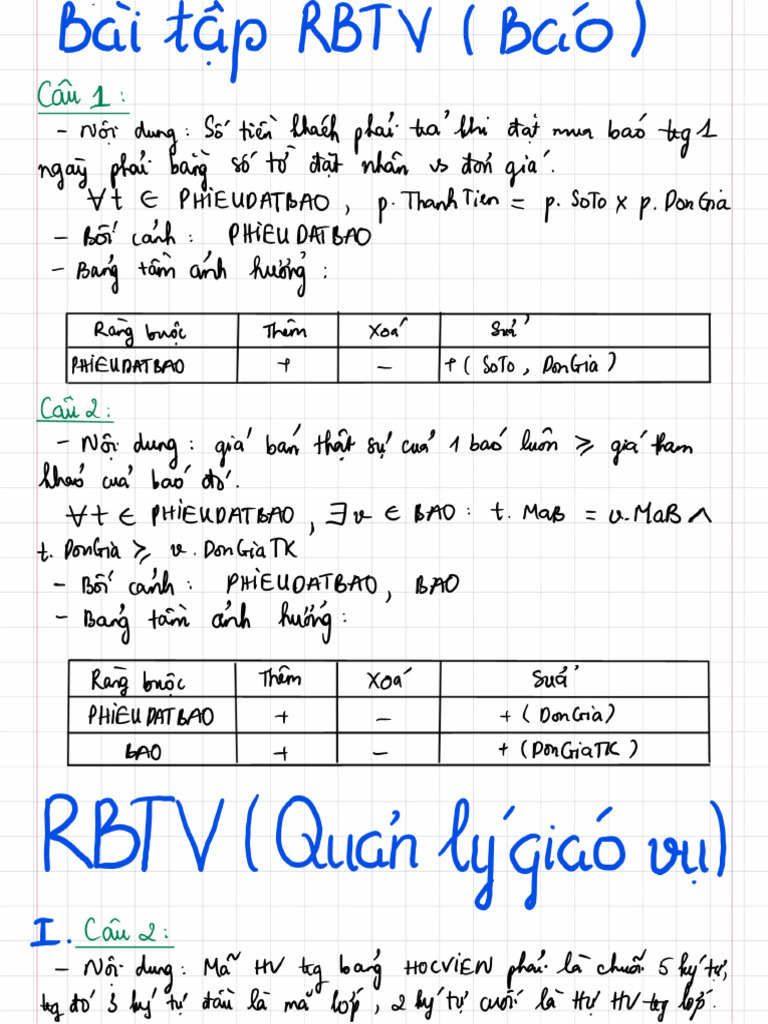 Bài tập RBTV (Báo)
Câu 1:
- Nội dung: Số tiền khách phải trả khi đặt mua báo tg 1
ngày phải bằng số tờ đặt nhân vs đơn giá.
∀t ∈ PHIEUDATBAO, p.ThanhTien = p.SoTo x p.DonGia
- Bối cảnh: PHIEUDATBAO
- Bảng tầm ảnh hưởng:
Ràng buộc Thêm Xoá Sửa
PHIEUDATBAO + - +(SoTo, DonGia)
Câu 2:
- Nội dung: giá bán thật sự của 1 báo luôn ≥ giá tham
khảo của báo đó.
∀t ∈ PHIEUDATBAO, ∃v ∈ BAO: t.MaB = v.MaB ∧
t.DonGia ≥ v.DonGiaTK
- Bối cảnh: PHIEUDATBAO, BAO
- Bảng tầm ảnh hưởng:
Ràng buộc Thêm Xoá Sửa
PHIEUDATBAO + - +(DonGia)
BAO + - +(DonGiaTK)
RBTV (Quản lý giáo vụ)
I. Câu 2:
- Nội dung: Mã HV tg bảng HOCVIEN phải là chuỗi 5 ký tự,
tg đó 3 ký tự đầu là mã lớp, 2 ký tự cuối là tự HV tg lớp.